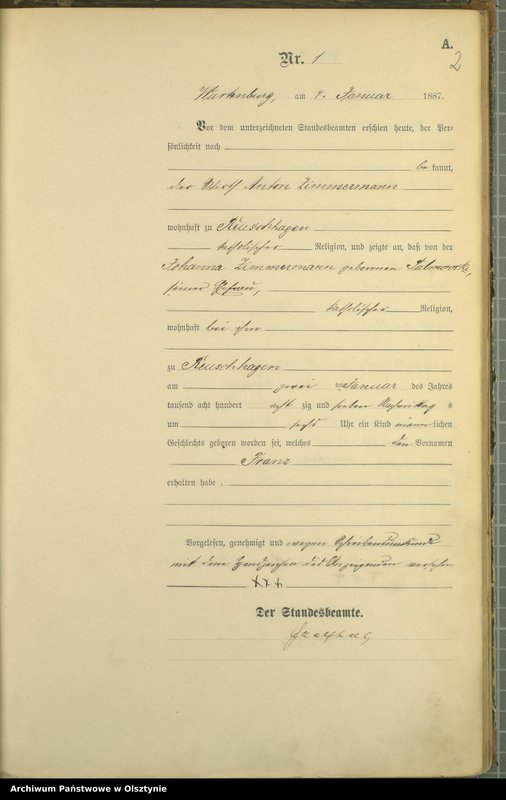 A.
2
Nr. 1
Wartenburg, am 4. Januar 1887.
Vor dem unterzeichneten Standesbeamten erschien heute, der Per-
sönlichkeit nach
bekannt,
der Wirth Anton Zimmermann
wohnhaft zu Reuschhagen
katholischer Religion, und zeigte an, daß von der
Johanna Zimmermann geborenen
seiner Ehefrau,
katholischer Religion,
wohnhaft bei ihm
zu Reuschhagen
am zwei ten Januar des Jahres
tausend acht hundert acht zig und sieben Nachmittags
um sechs Uhr ein Kind männlichen
Geschlechts geboren worden sei, welches den Vornamen
Franz
erhalten habe.
Vorgelesen, genehmigt und wegen Schreibensunkunde
mit dem Handzeichen des Anzeigenden versehen
+++
Der Standesbeamte.
Archiwum Państwowe w Olsztynie